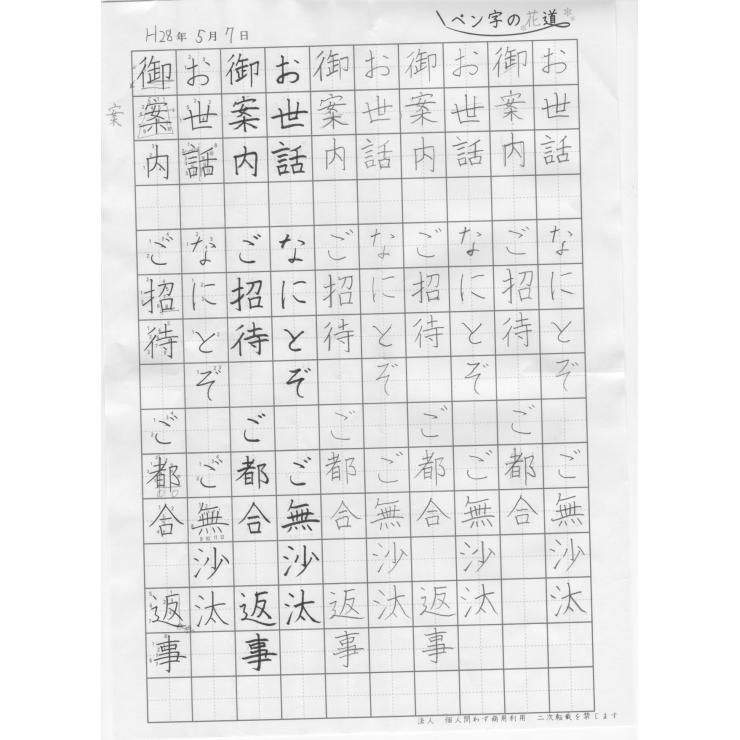 ペン字の花道
H28年 5月 7日
お世話 なにとぞ ご無沙汰
御案内 ご招待 ご都合
お世話 なにとぞ ご無沙汰
御案内 ご招待 ご都合 返事
お世話 なにとぞ ご無沙汰
御案内 ご招待 ご都合 返事
お世話 なにとぞ ご無沙汰
御案内 ご招待 ご都合 返事
お世話 なにとぞ ご無沙汰
御案内 ご招待 ご都合 返事
案
法人 個人問わず商用利用 二次転載を禁じます